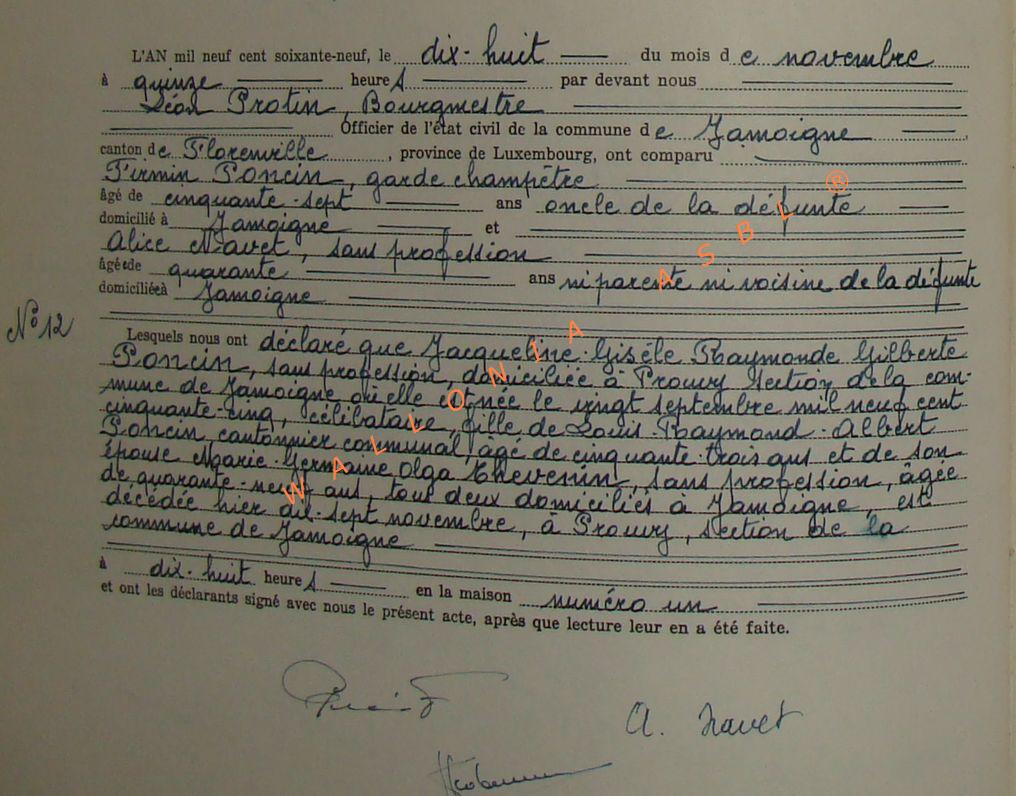 L'AN mil neuf cent soixante-neuf, le dix-huit du mois de novembre
à quinze heures par devant nous
Léon Protin, Bourgmestre
Officier de l'état civil de la commune de Jamoigne,
canton de Florenville, province de Luxembourg, ont comparu
Firmin Poncin, garde champêtre
âgé de cinquante-sept ans oncle de la défunte
domicilié à Jamoigne et
Alice Navet, sans profession
âgée de quarante ans ni parente ni voisine de la défunte
domiciliée à Jamoigne
N° 12
Lesquels nous ont déclaré que Jacqueline-Gisèle Raymonde Gilberte
Poncin, sans profession, domiciliée à Prouvy section de la com-
mune de Jamoigne où elle est née le vingt septembre mil neuf cent
cinquante-cinq, célibataire, fille de Louis-Raymond-Albert
Poncin, cantonnier communal, âgé de cinquante-trois ans et de son
épouse Marie-Germaine Olga Thevenin, sans profession, âgée
de quarante-neuf ans, tous deux domiciliés à Jamoigne, est
décédée hier dix-sept novembre, à Prouvy, section de la
commune de Jamoigne
à dix-huit heures en la maison numéro un
et ont les déclarants signé avec nous le présent acte, après que lecture leur en a été faite.
A. Navet
WALLONIA ASBL ®